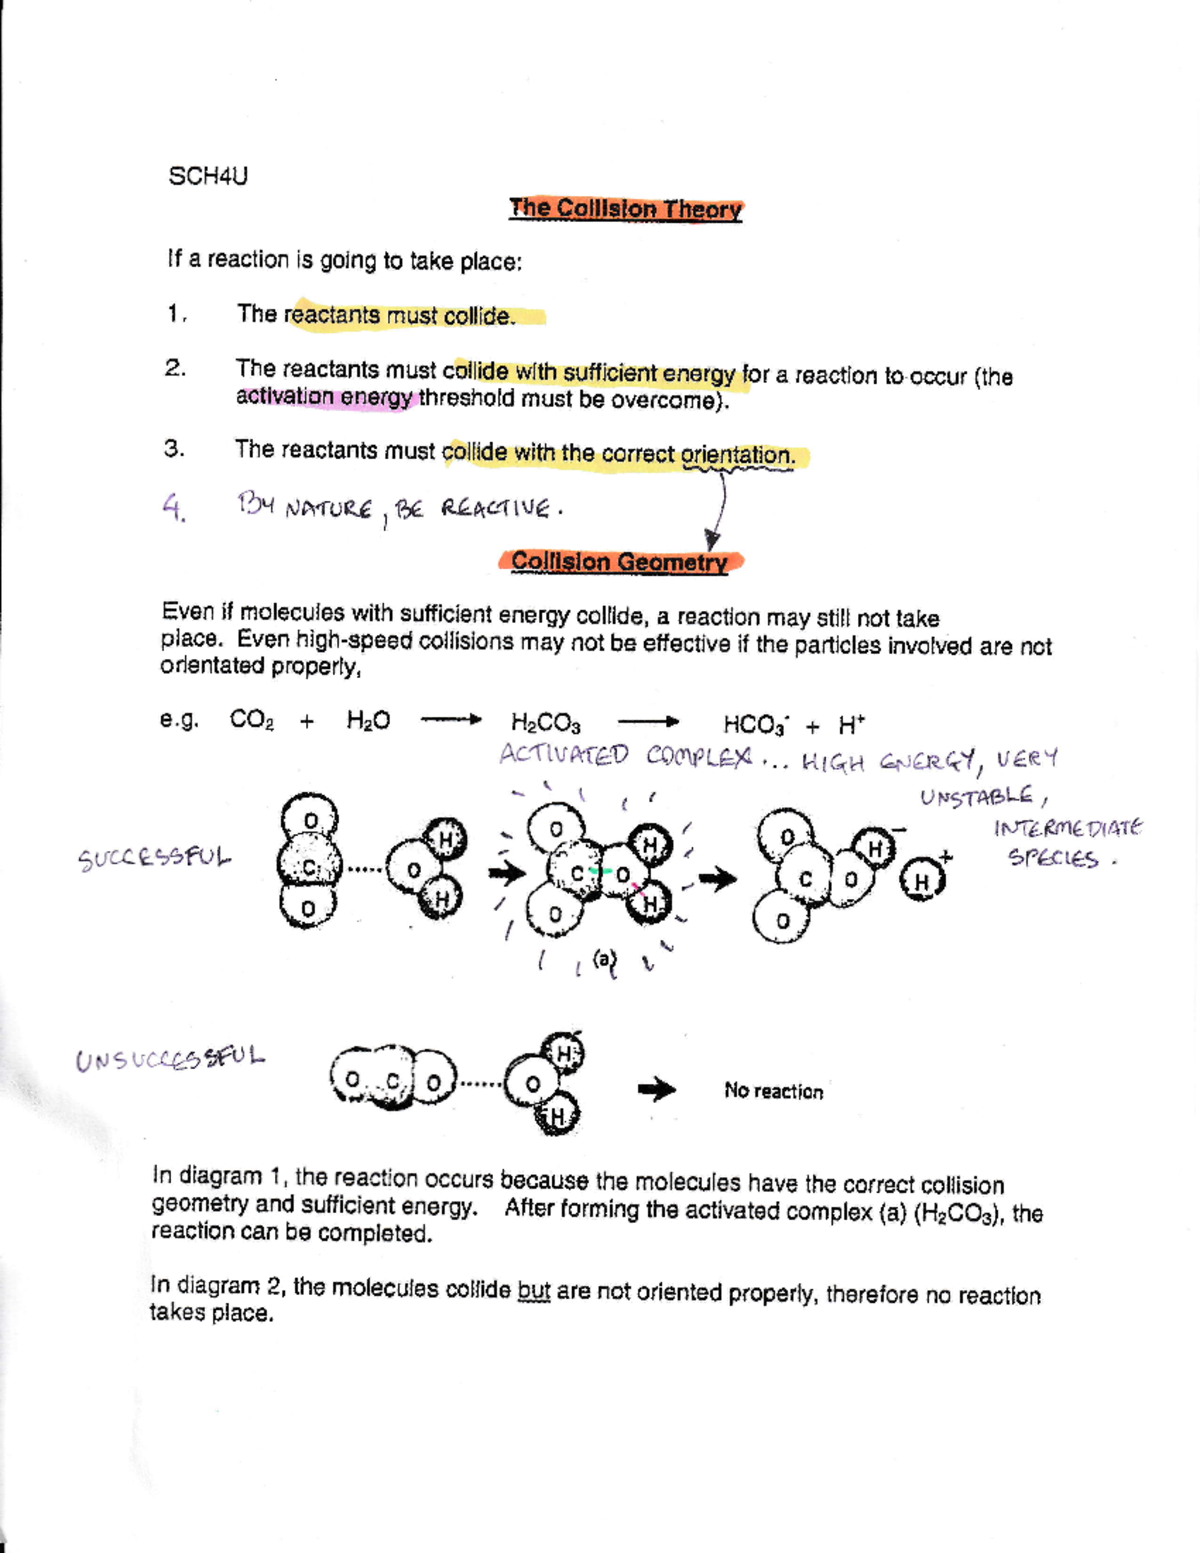 SCH4U
The Collision Theory
If a reaction is going to take place:
1. The reactants must collide.
2. The reactants must collide with sufficient energy for a reaction to occur (the
activation energy threshold must be overcome).
3. The reactants must collide with the correct orientation.
4. BY NATURE, BE REACTIVE.
Collision Geometry
Even if molecules with sufficient energy collide, a reaction may still not take
place. Even high-speed collisions may not be effective if the particles involved are not
orientated properly,
e.g. CO₂ + H₂O → H₂CO₃ → HCO₃⁻ + H⁺
ACTIVATED COMPLEX... HIGH ENERGY, VERY
UNSTABLE,
INTERMEDIATE
SPECIES.
SUCCESSFUL
O C O O H H
O C O O H H
O C O O H − H +
(a)
UNSUCCESSFUL
O C O O H H
No reaction
In diagram 1, the reaction occurs because the molecules have the correct collision
geometry and sufficient energy. After forming the activated complex (a) (H₂CO₃), the
reaction can be completed.
In diagram 2, the molecules collide but are not oriented properly, therefore no reaction
takes place.